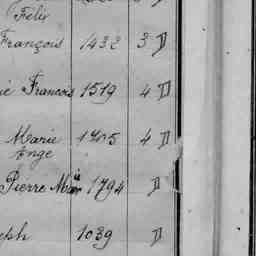 Félix
François 1432 3 D
ie François 1519 4 D
Marie 1705 4 D
Ange
Pierre Mie 1794 D
eph 1039 D